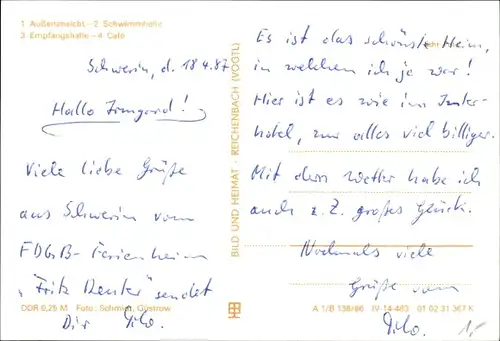 1 Außenansicht – 2 Schwimmhalle
3 Empfangshalle – 4 Café
Schwerin, d. 18.4.87
Hallo Irmgard!
Viele liebe Grüße
aus Schwerin vom
FDGB-Ferienheim
„Fritz Reuter" sendet
Dir Tilo.
DDR 0,25 M Foto: Schmidt, Güstrow
BILD UND HEIMAT · REICHENBACH (VOGTL)
Es ist das schönste Heim,
in welchen ich je war!
Hier ist es wie im Inter-
hotel, nur alles viel billiger.
Mit dem Wetter habe ich
auch z. Z. großes Glück.
Nochmals viele
Grüße vom
Tilo.
A 1/B 138/86 IV-14-483 01 02 31 367 K